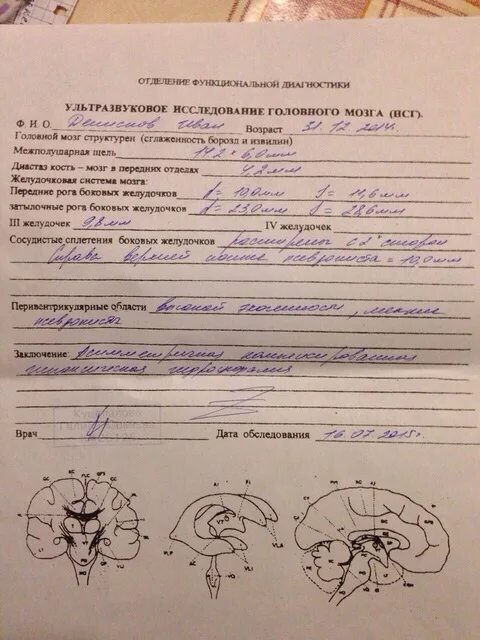 ОТДЕЛЕНИЕ ФУНКЦИОНАЛЬНОЙ ДИАГНОСТИКИ
УЛЬТРАЗВУКОВОЕ ИССЛЕДОВАНИЕ ГОЛОВНОГО МОЗГА (НСГ).
Ф. И О. Иван Возраст 31.12.2014г.
Головной мозг структурен (сглаженность борозд и извилин)
Межполушарная щель 6,0мм
Диастаз кость – мозг в передних отделах 4,2мм
Желудочковая система мозга:
Передние рога боковых желудочков d = 10,0мм S = 11,6мм
затылочные рога боковых желудочков d = 23,0мм S = 28,6мм
III желудочек 9,8мм IV желудочек
Сосудистые сплетения боковых желудочков расширены с 2х сторон
справа верхней псевдокиста = 10,0мм
Перивентрикулярные области высокой эхогенности, мелкие
псевдокисты
Заключение: Асимметричная
гидроцефалия
Врач Дата обследования 16.07.2015г.